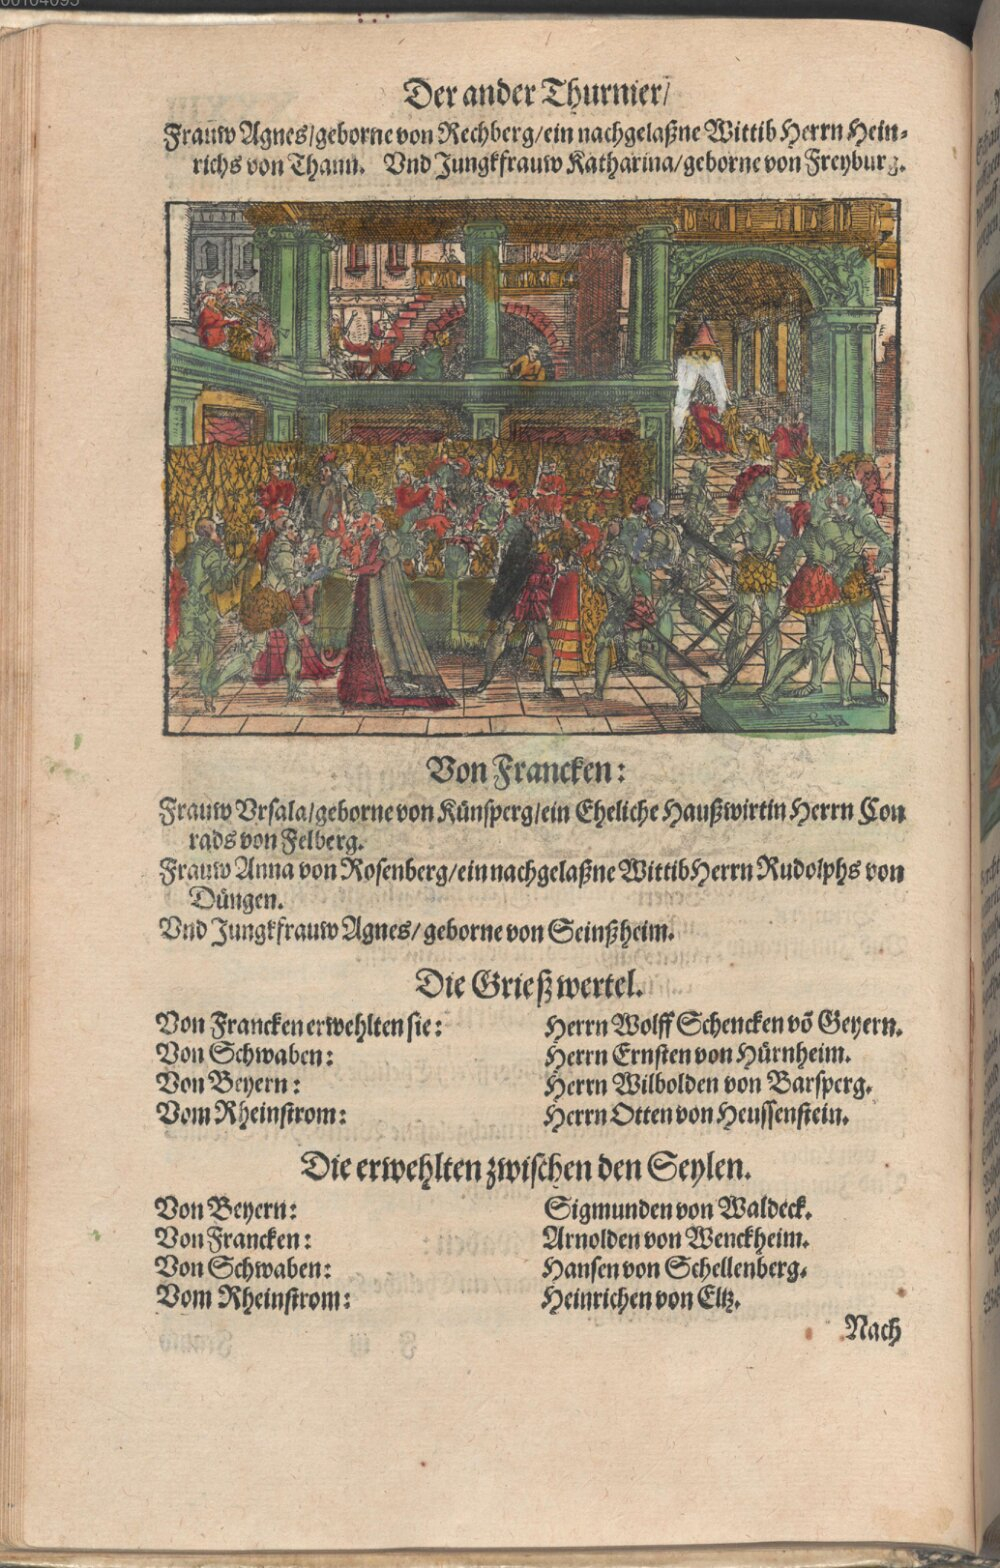 Der ander Thurnier/
Frauw Agnes/geborne von Rechberg/ein nachgelaßne Wittib Herrn Hein-
richs von Thann. Vnd Jungkfrauw Katharina/geborne von Freyburg.
Von Francken:
Frauw Vrsala/geborne von Künsperg/ein Eheliche Haußwirtin Herrn Con
rads von Felberg.
Frauw Anna von Rosenberg/ein nachgelaßne Wittib Herrn Rudolphs von
Düngen.
Vnd Jungkfrauw Agnes/geborne von Seinßheim.
Die Grießwertel.
Von Francken erwehlten sie: Herrn Wolff Schencken võ Geyern.
Von Schwaben: Herrn Ernsten von Hürnheim.
Von Beyern: Herrn Wilbolden von Barsperg.
Vom Rheinstrom: Herrn Otten von Heussenstein.
Die erwehlten zwischen den Seylen.
Von Beyern: Sigmunden von Waldeck.
Von Francken: Arnolden von Wenckheim.
Von Schwaben: Hansen von Schellenberg.
Vom Rheinstrom: Heinrichen von Eltz.
Nach